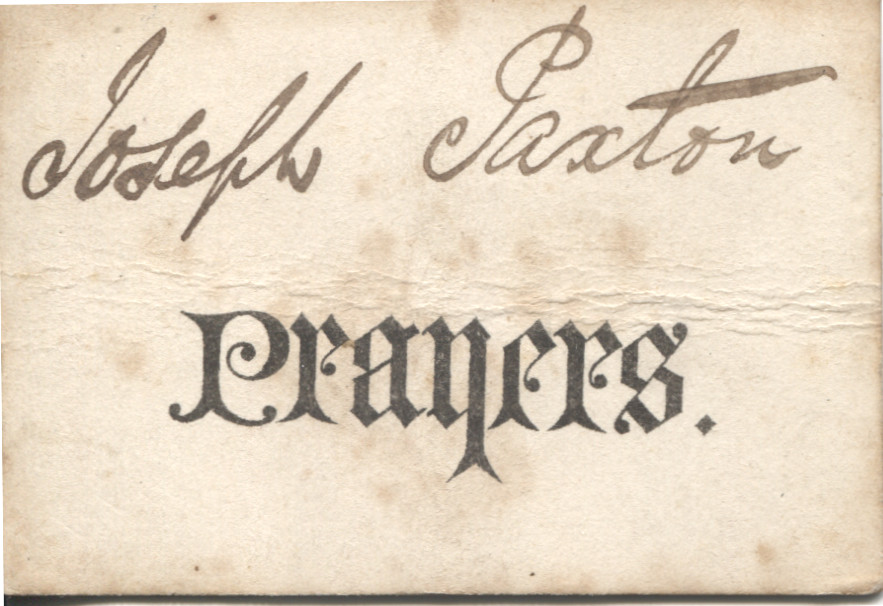 Joseph Paxton
Prayers.